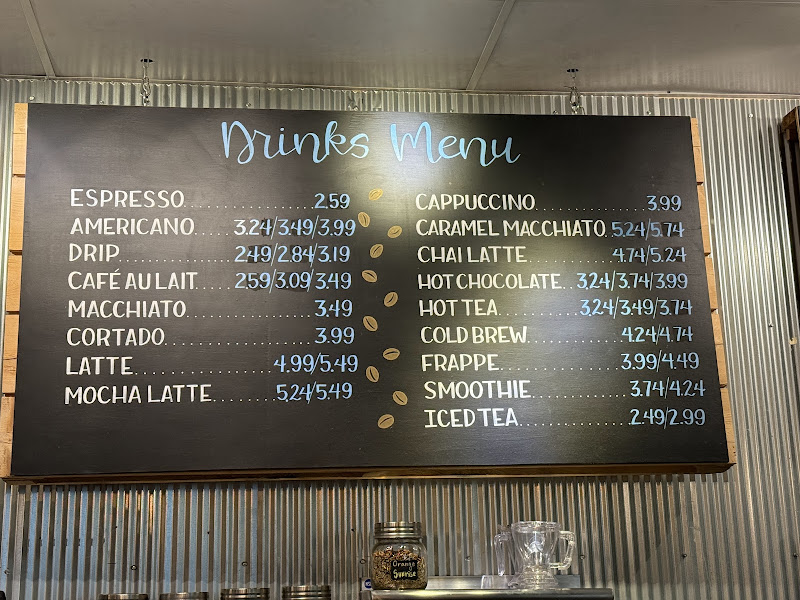 Drinks Menu
ESPRESSO.................2.59
AMERICANO.....3.24/3.49/3.99
DRIP................2.49/2.84/3.19
CAFÉ AU LAIT.....2.59/3.09/3.49
MACCHIATO..................3.49
CORTADO.....................3.99
LATTE...................4.99/5.49
MOCHA LATTE.........5.24/5.49
CAPPUCCINO................3.99
CARAMEL MACCHIATO 5.24/5.74
CHAI LATTE............4.74/5.24
HOT CHOCOLATE..3.24/3.74/3.99
HOT TEA...........3.24/3.49/3.74
COLD BREW.............4.24/4.74
FRAPPE.................3.99/4.49
SMOOTHIE..............3.74/4.24
ICED TEA...............2.49/2.99
Orange
Sunrise